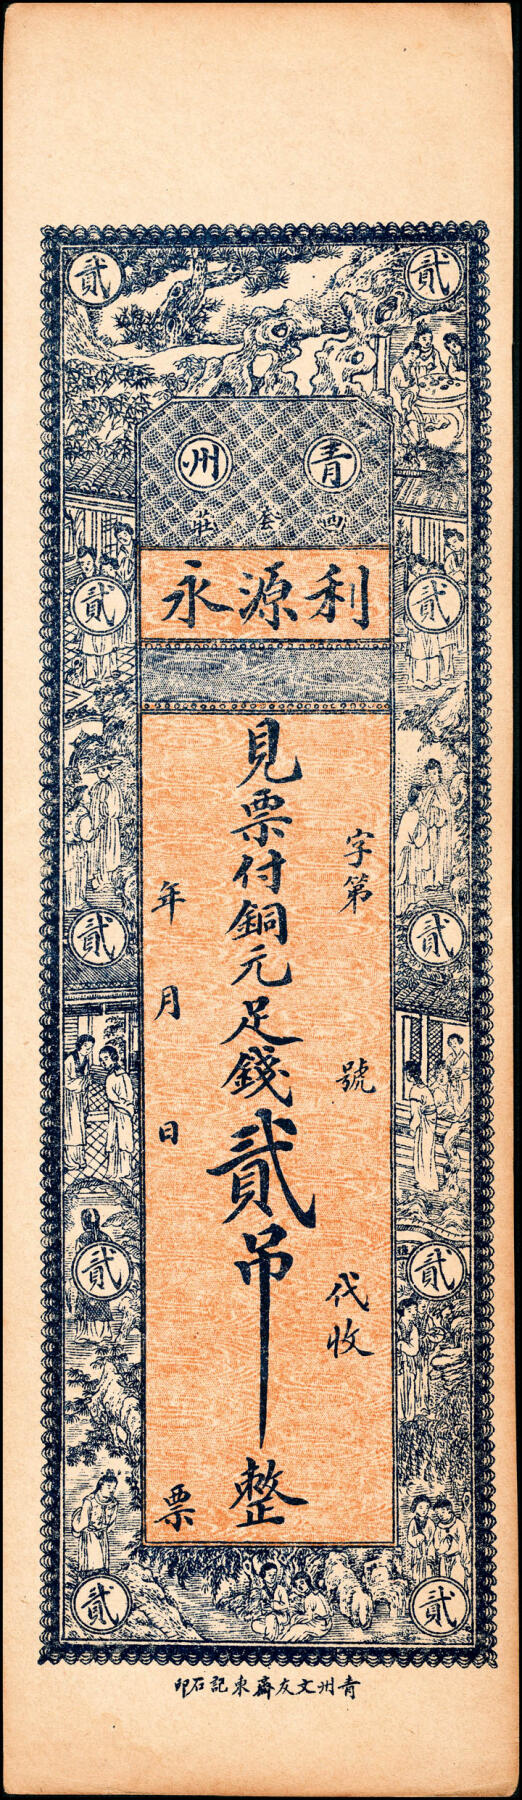 貳 貳
青州
西套莊
利源永
貳 貳
字第 號 代收
見票付銅元足錢貳吊整
年 月 日 票
貳 貳
貳 貳
貳 貳
青州文友齋東記石印